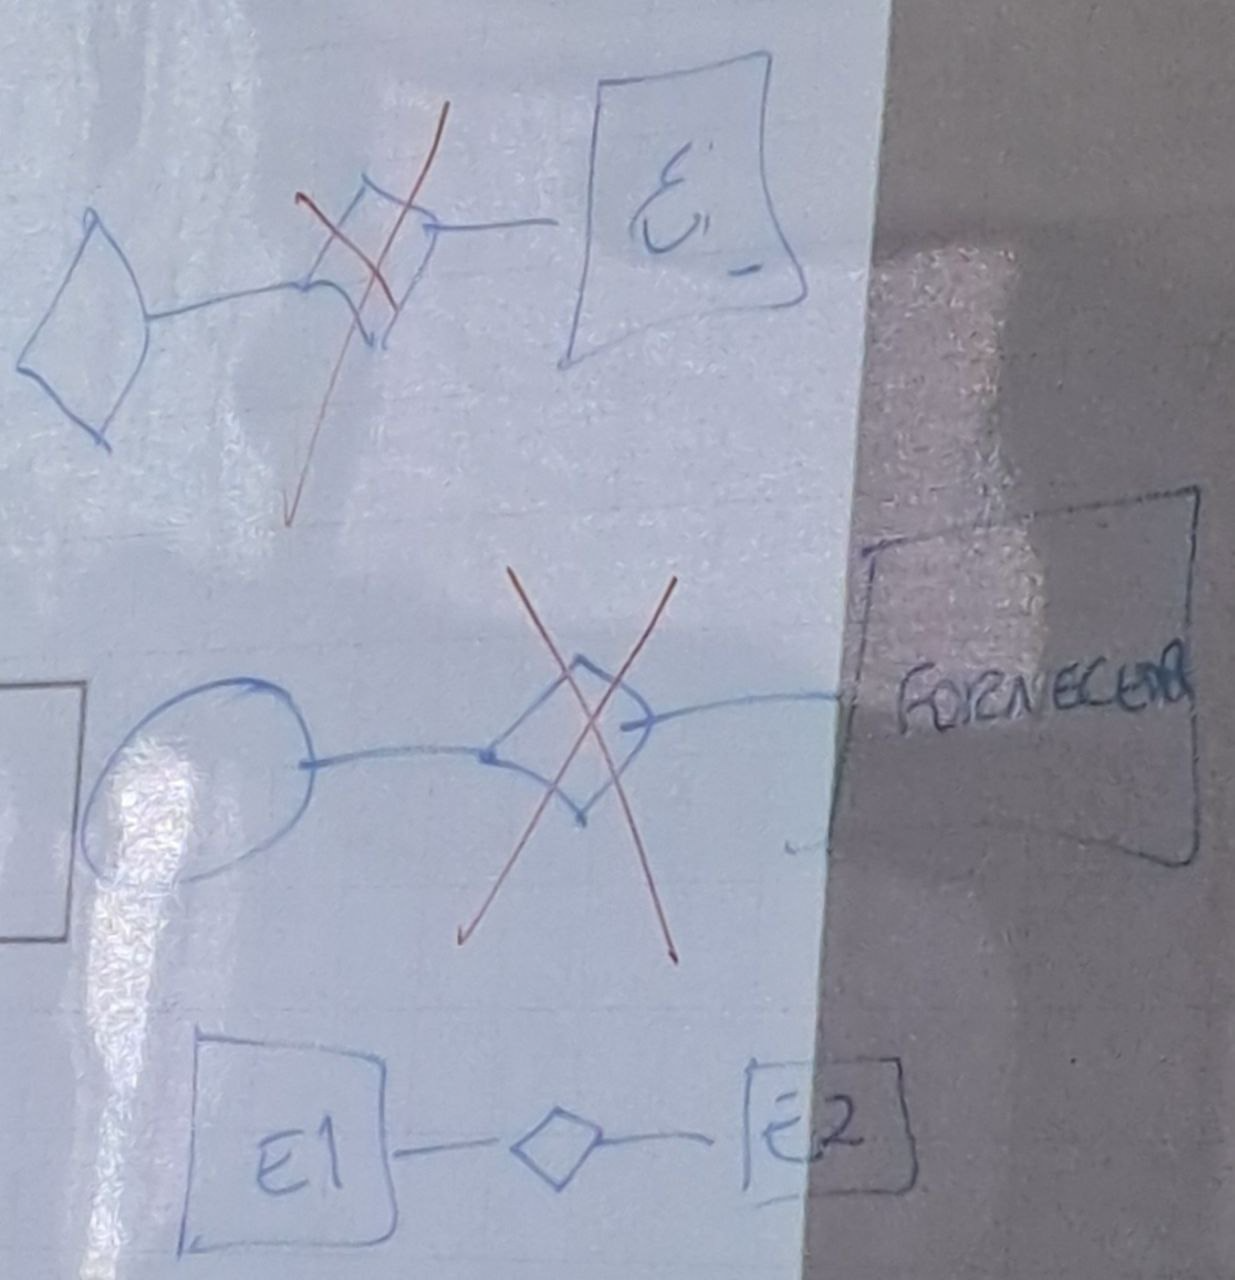 E
FORNECEDOR
E1
E2